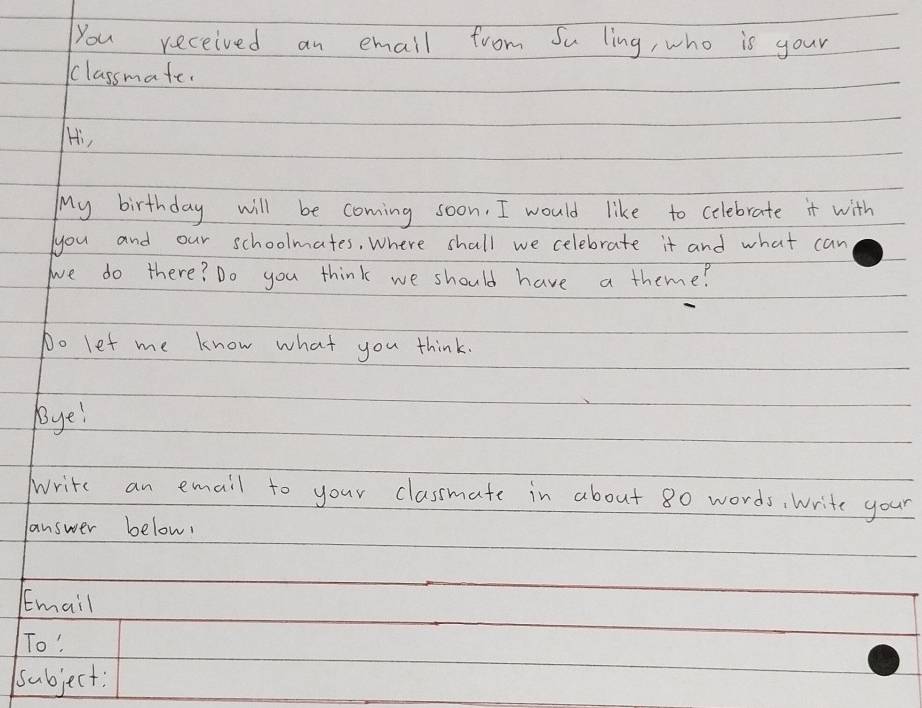 You received an email from Su ling, who is your
classmate.
Hi,
My birthday will be coming soon. I would like to celebrate it with
you and our schoolmates. Where shall we celebrate it and what can
we do there? Do you think we should have a theme?
Do let me know what you think.
Bye!
Write an email to your classmate in about 80 words. Write your
answer below.
Email
To:
Subject: